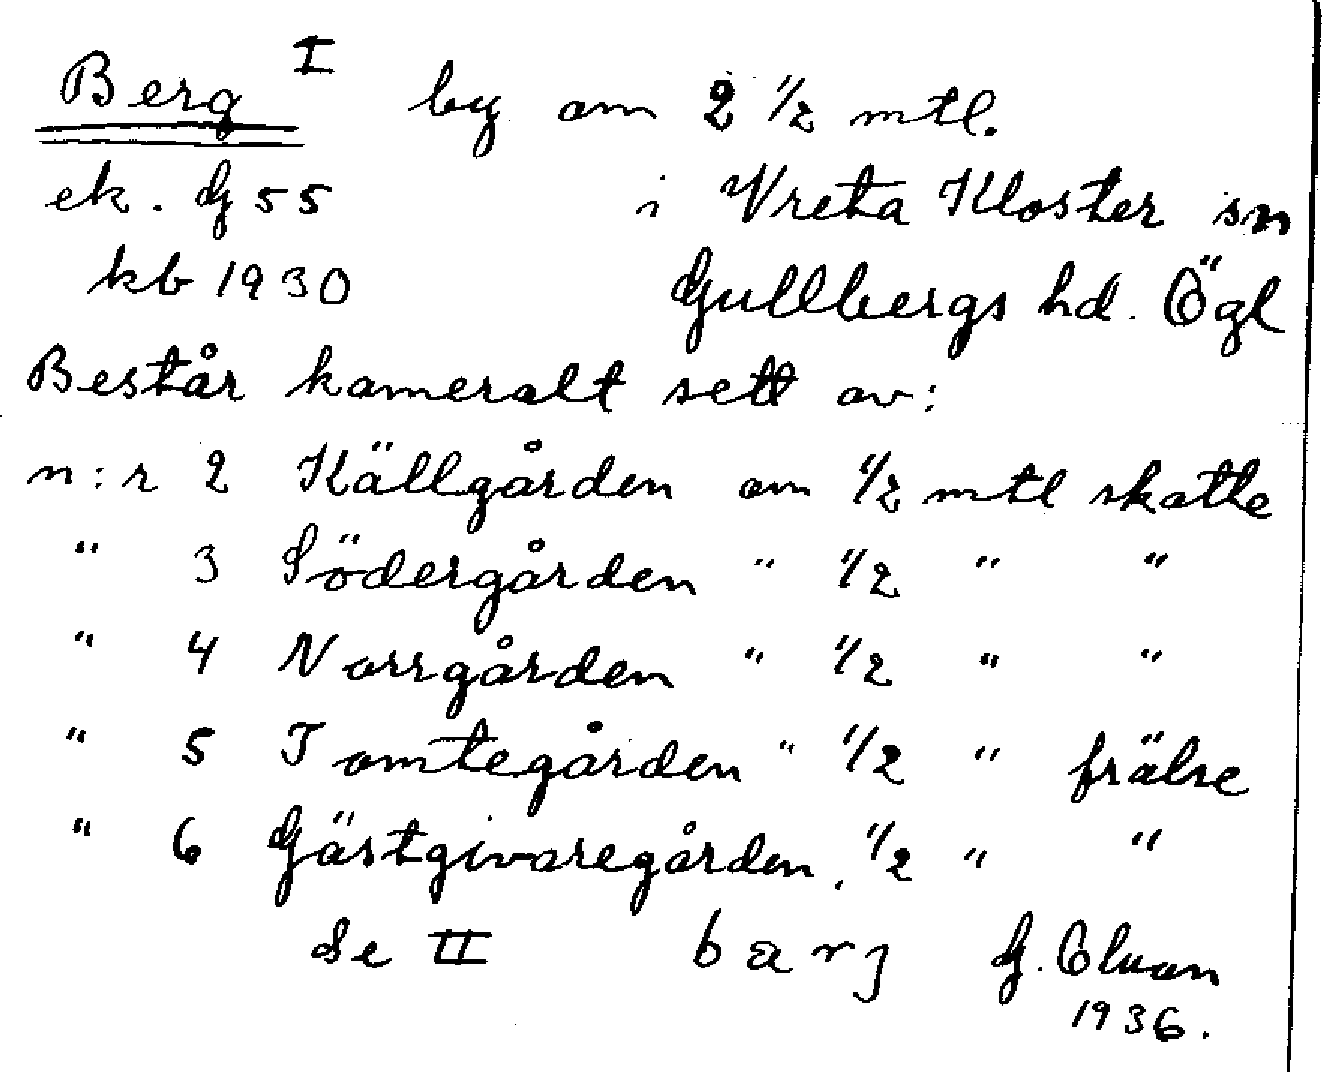 Berg I by om 2 1/2 mtl.
ek. G 55 i Vreta Kloster sn
kb 1930 Gullbergs hd. Ögl
Består kameralt sett av:
n:r 2 Källgården om 1/2 mtl skatte
" 3 Södergården " 1/2 " "
" 4 Norrgården " 1/2 " "
" 5 Tomtegården " 1/2 " frälse
" 6 Gästgivaregården, 1/2 " "
Se II barj G.
1936.